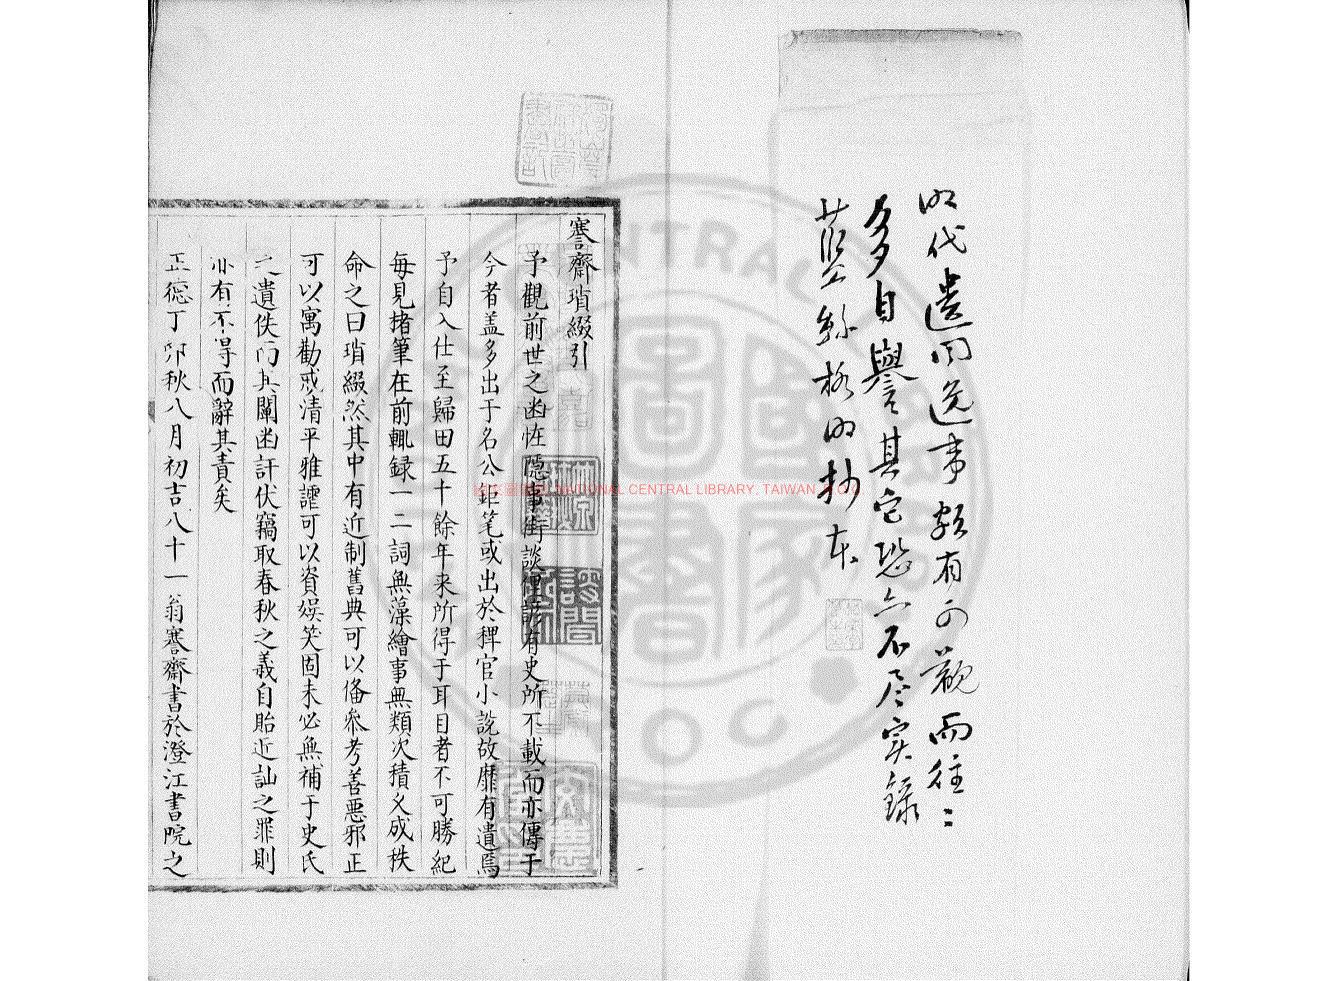 明代遺聞逸事頗有可觀而往二
多自譽其它恐亦不尽实録
藍絲格明抄本
謇齋瑣綴引
予觀前世之幽怪隱事街談俚諺有史所不載而亦傳于
今者盖多出于名公鉅笔或出於稗官小説故靡有遺焉
予自入仕至歸田五十餘年来所得于耳目者不可勝紀
每見楮筆在前輒録一二詞無藻繪事無類次積久成秩
命之曰瑣綴然其中有近制舊典可以備叅考善惡邪正
可以寓勸戒清平雅謔可以資娱笑固未必無補于史氏
之遺佚而其闡幽訐伏竊取春秋之義自貽近訕之罪則
亦有不得而辭其責矣
正德丁卯秋八月初吉八十一翁謇齋書於澄江書院之
國家圖書館 NATIONAL CENTRAL LIBRARY, TAIWAN, R.O.C.